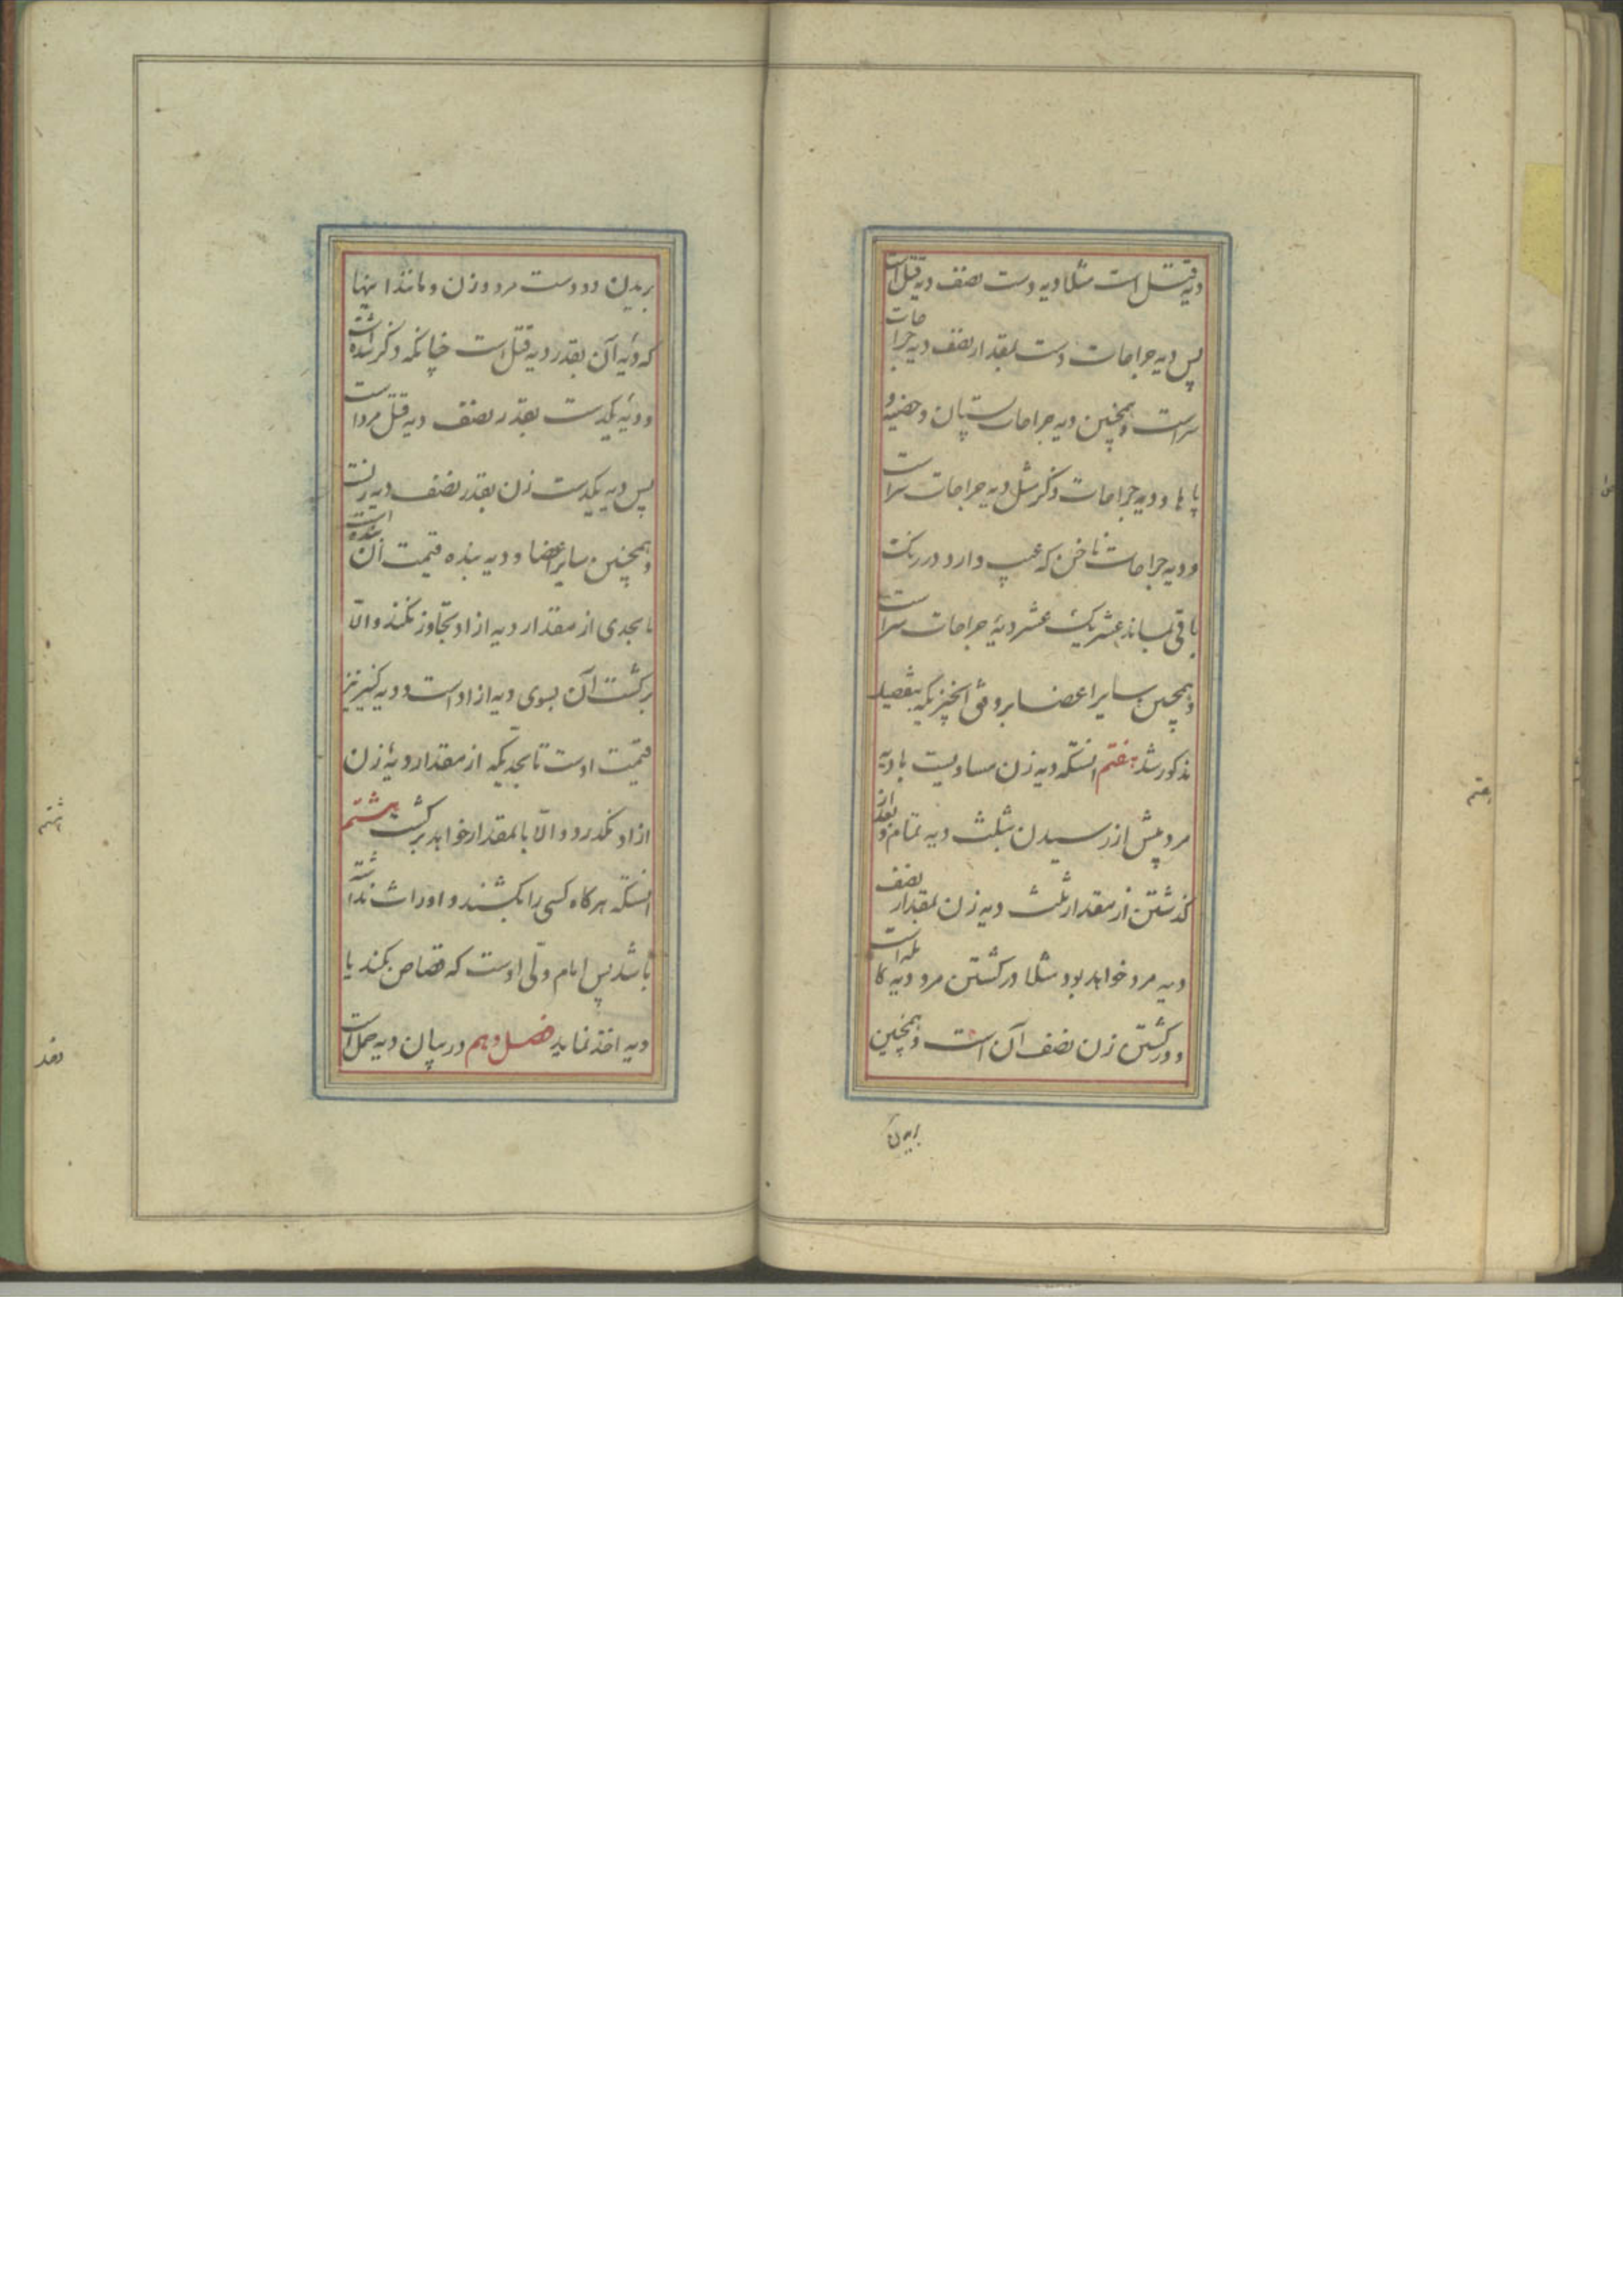 دیه قتل است مثلا دیه دست نصف دیه قتل است
پس دیه جراحات دست بمقدار نصف دیه جراحات
سراست و همچنین دیه جراحات پستان و خصیه و
پا ها و دیه جراحات ذکر مثل دیه جراحات سراست
و دیه جراحات ناخن که عیب دارد و در رنک
باقی نماند عشر یک عشر دیهٔ جراحات سراست
و همچنین سایر اعضا بر وفق انچیزیکه بتفصیل
مذکور شد هفتم انستکه دیه زن مساویست با دیه
مرد پیش از رسیدن بثلث دیه تمام و بعد از
گذشتن از مقدار ثلث دیه زن بمقدار نصف
دیه مرد خواهد بود مثلا در کشتن مرد دیه کامله است
و در کشتن زن نصف آن است و همچنین
بریدن
هفتم
بریدن دو دست مرد و زن و مانند اینها
که دیهٔ آن بقدر دیه قتل است چنانکه ذکر شده است
و دیهٔ یکدست بقدر نصف دیه قتل مرد است
پس دیه یکدست زن بقدر نصف دیه زنست
و همچنین سایر اعضا و دیه بنده قیمت آن بنده است
تا بحدی از مقدار دیه ازاد تجاوز نکند و الّا
برکشت آن بسوی دیه ازاد است و دیه کنیز نیز
قیمت اوست تا بحدیکه از مقدار دیهٔ زن
ازاد نگذرد و الّا بانمقدار خواهد برکشت هشتم
انستکه هرکاه کسی را بکشند و او وارث نداشته
باشد پس امام ولّی اوست که قصاص بکند یا
دیه اخذ نماید فصل دهم در بیان دیه حمل است
هشتم